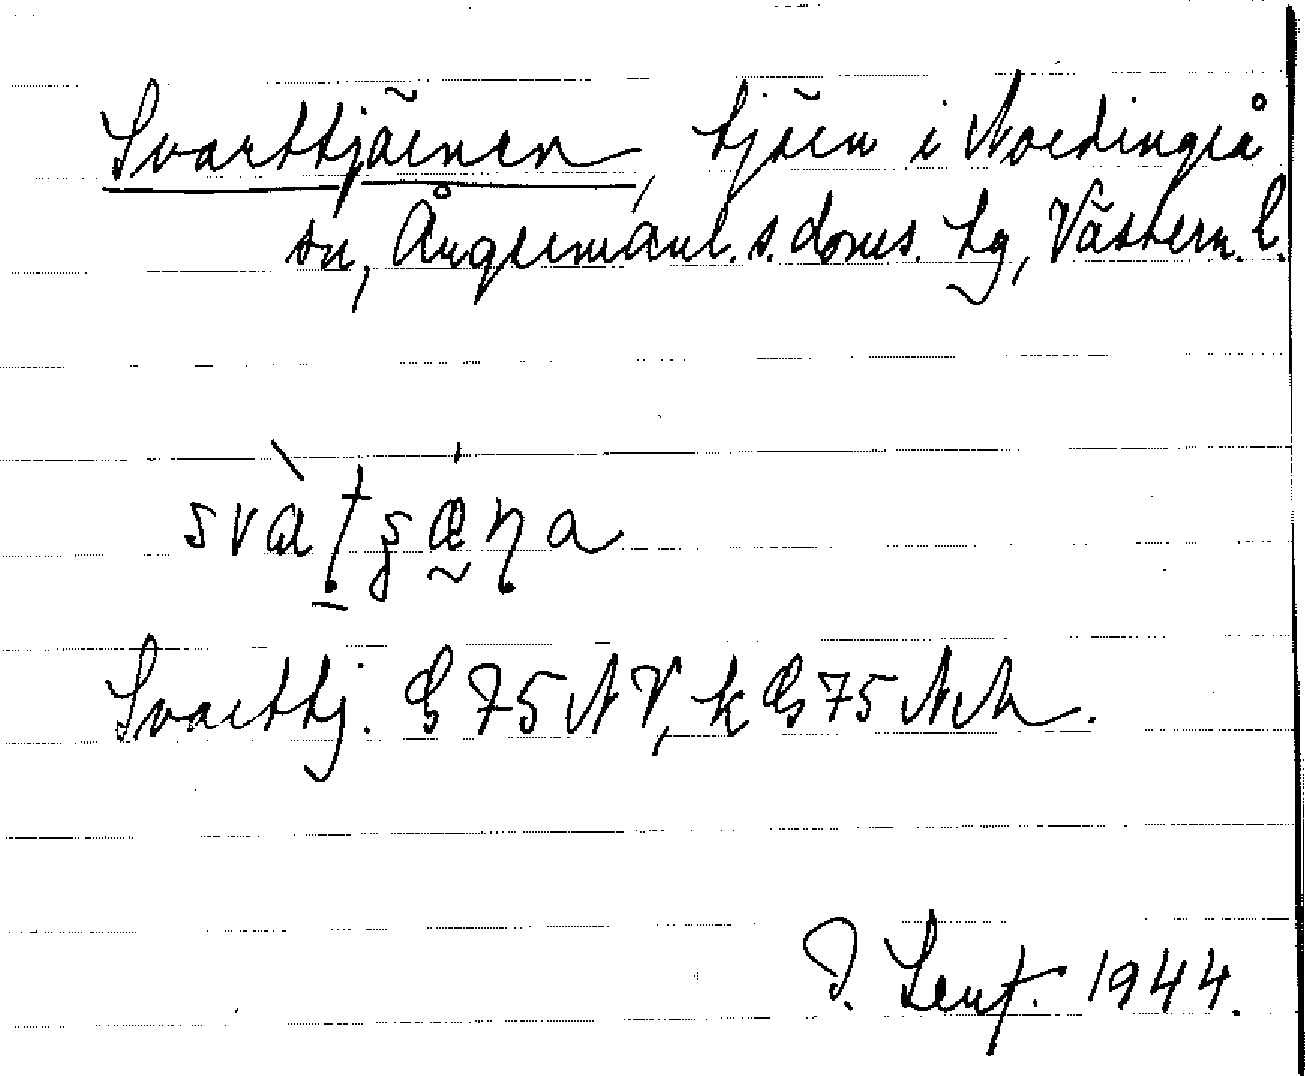 Svarttjärnen, tjärn i Nordingrå
sn, Ångermanl. s. doms. tg, Västern. l.
svàtʂǽɳa
Svarttj. G 75 NV, k G 75 NM.
Lenf. 1944.